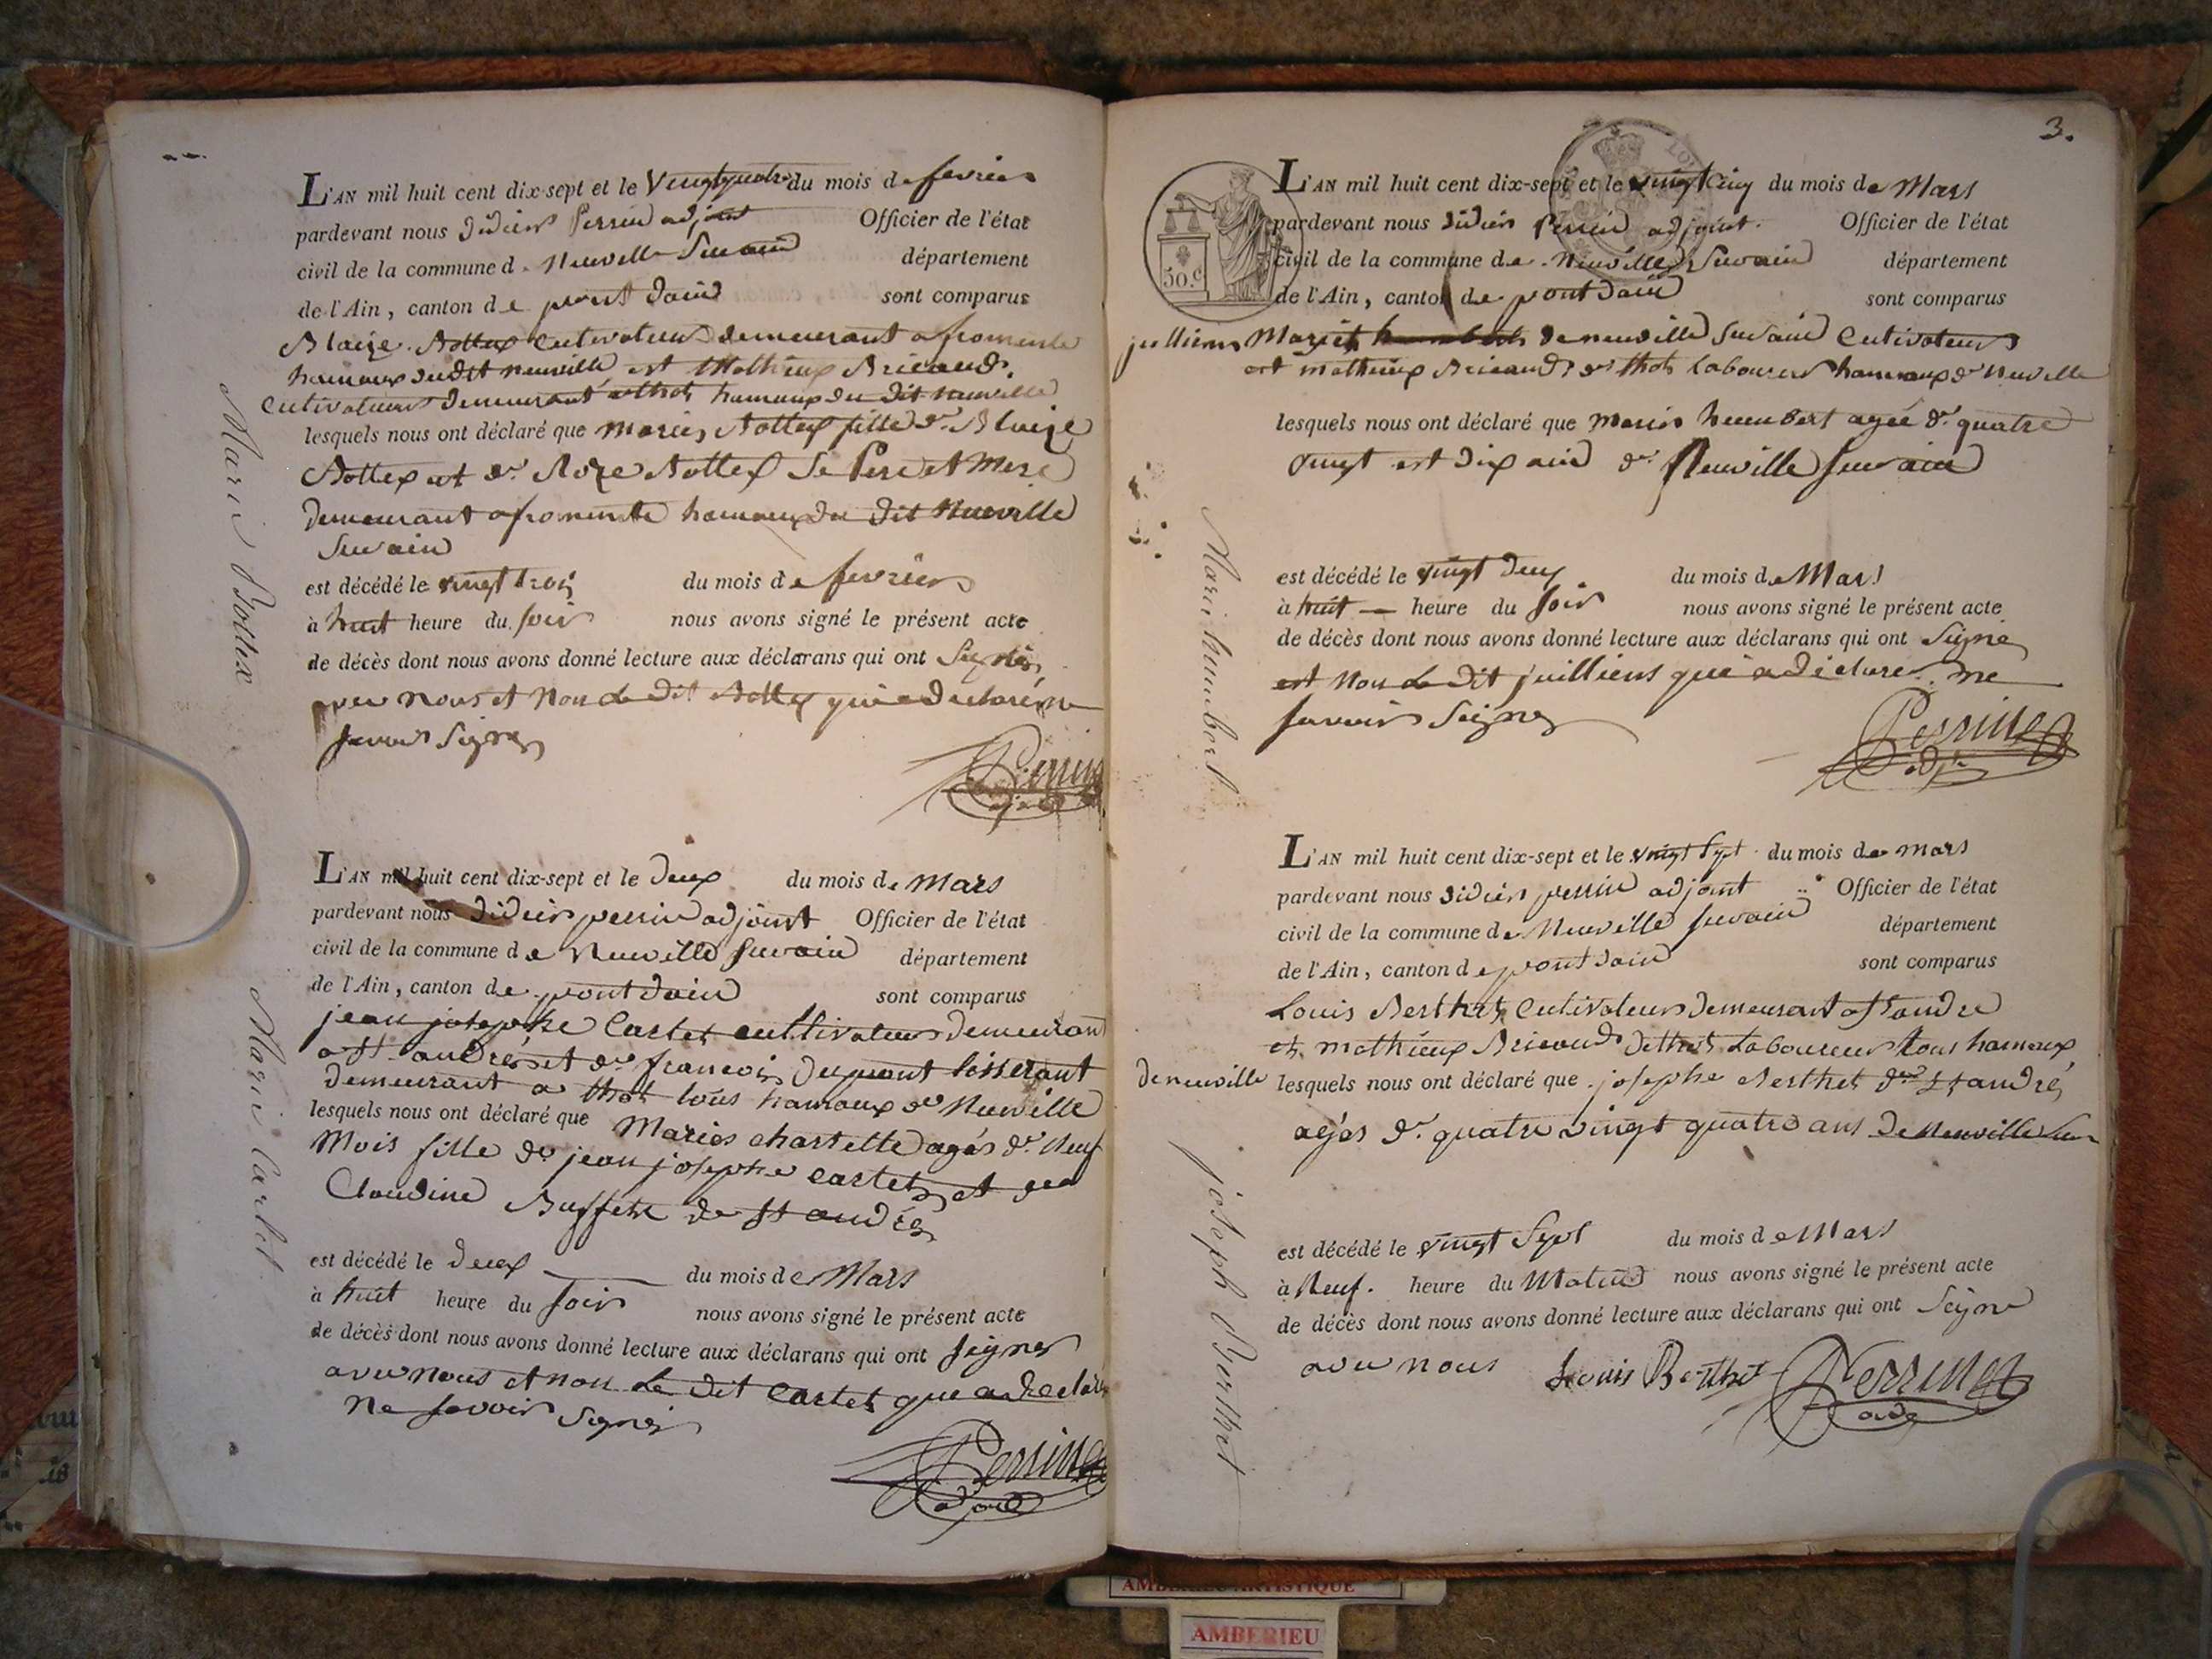 L'AN mil huit cent dix-sept et le vingtquatre du mois de fevrier
pardevant nous didier Perrin adjoint Officier de l'état
civil de la commune de Neuville Surain département
de l'Ain, canton de pont dain sont comparus
Blaize Bottex cutivateur demeurant a fromente
hamaux dudit neuville est Mathieux Bricaud
cutivateur demeurant a thol hamaux du dit neuville
lesquels nous ont déclaré que Marie Bottex fille de Blaize
Bottex et de Roze Bottex Se Pere et Mere
demeurant a fromente hamaux du dit Neuville
Surain
est décédé le vingt trois du mois de fevrier
à huit heure du soir nous avons signé le présent acte
de décès dont nous avons donné lecture aux déclarans qui ont Signer
avec nous et Non Le dit Bottex qui a declaré ne
savoir Signer
Perrin
adjoint
Marie Bottex
L'AN mil huit cent dix-sept et le deux du mois de Mars
pardevant nous didier perrin adjoint Officier de l'état
civil de la commune de Neuville Surain département
de l'Ain, canton de pont dain sont comparus
jean josephe Cartet cultivateur demeurant
a St andré et de francois dupont tisserant
demeurant a thol tous hamaux de Neuville
lesquels nous ont déclaré que Marie chartette agés de Neuf
Mois fille de jean josephe cartet et de
Claudine Buffet de St andré
est décédé le deux du mois de Mars
à huit heure du soir nous avons signé le présent acte
de décès dont nous avons donné lecture aux déclarans qui ont signer
avec nous et non Le dit cartet que a declare
ne savoir Signer
Perrin
adjoint
Marie Cartet
3.
50.c
L'AN mil huit cent dix-sept et le vingt cinq du mois de Mars
pardevant nous didier Perrin adjoint Officier de l'état
civil de la commune de Neuville Surain département
de l'Ain, canton de pont dain sont comparus
jullien Mariet de neuville Surain Cutivateur
est mathieux Bricaud de thol laboureur hamaux de Neuville
lesquels nous ont déclaré que Marie humbert agée de quatre
vingt est dix ain de Neuville Surain
est décédé le vingt deux du mois de Mars
à huit heure du soir nous avons signé le présent acte
de décès dont nous avons donné lecture aux déclarans qui ont Signé
est Non Le dit juillien que a declarer ne
savoir Signer
Perrin
adj
Marie humbert
L'AN mil huit cent dix-sept et le vingt sept du mois de mars
pardevant nous didier perrin adjoint Officier de l'état
civil de la commune de Neuville Surain département
de l'Ain, canton de pont dain sont comparus
Louis Berthet Cutivateur demeurant a St andre
et mathieux Bricaud de thol Laboureur tous hamaux
de neuville lesquels nous ont déclaré que josephe Berthet de St andré
agés de quatre vingt quatre ans de Neuville Sur
est décédé le vingt Sept du mois de Mars
à Neuf heure du Matin nous avons signé le présent acte
de décès dont nous avons donné lecture aux déclarans qui ont Signe
avec nous Louis Berthet Perrin
adj
joseph Berthet
AMBERIEU ARTISTIQUE
AMBERIEU